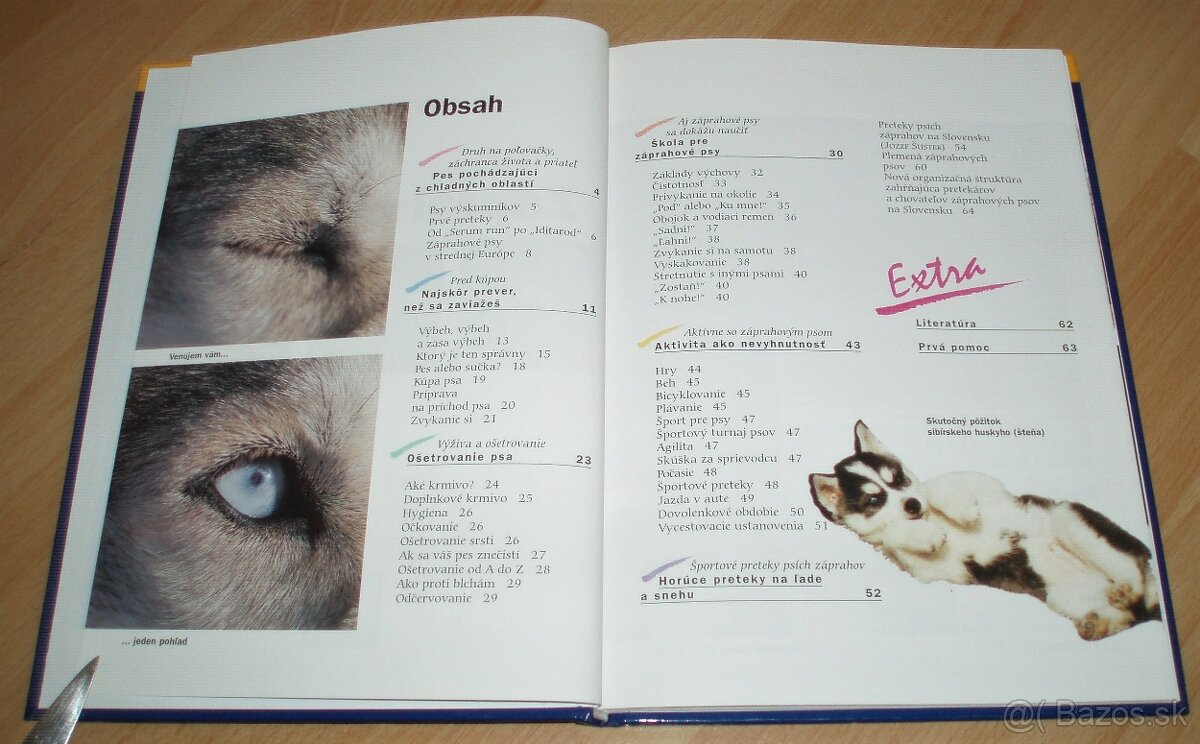 Obsah
Venujem vám...
... jeden pohľad
Druh na poľovačky,
záchranca života a priateľ
Pes pochádzajúci
z chladných oblastí 4
Psy výskumníkov 5
Prvé preteky 6
Od „Serum run" po „Iditarod" 6
Záprahové psy
v strednej Európe 8
Pred kúpou
Najskôr prever,
než sa zaviažeš 11
Výbeh, výbeh
a zasa výbeh 13
Ktorý je ten správny 15
Pes alebo sučka? 18
Kúpa psa 19
Príprava
na príchod psa 20
Zvykanie si 21
Výživa a ošetrovanie
Ošetrovanie psa 23
Aké krmivo? 24
Doplnkové krmivo 25
Hygiena 26
Očkovanie 26
Ošetrovanie srsti 26
Ak sa váš pes znečistí 27
Ošetrovanie od A do Z 28
Ako proti blchám 29
Odčervovanie 29
Aj záprahové psy
sa dokážu naučiť
Škola pre
záprahové psy 30
Základy výchovy 32
Čistotnosť 33
Privykanie na okolie 34
„Poď" alebo „Ku mne!" 35
Obojok a vodiaci remeň 36
„Sadni!" 37
„Ľahni!" 38
Zvykanie si na samotu 38
Vyskakovanie 38
Stretnutie s inými psami 40
„Zostaň!" 40
„K nohe!" 40
Aktívne so záprahovým psom
Aktivita ako nevyhnutnosť 43
Hry 44
Beh 45
Bicyklovanie 45
Plávanie 45
Šport pre psy 47
Športový turnaj psov 47
Agilita 47
Skúška za sprievodcu 47
Počasie 48
Športové preteky 48
Jazda v aute 49
Dovolenkové obdobie 50
Vycestovacie ustanovenia 51
Športové preteky psích záprahov
Horúce preteky na ľade
a snehu 52
Preteky psích
záprahov na Slovensku
(Jozef Šuster) 54
Plemená záprahových
psov 60
Nová organizačná štruktúra
zahŕňajúca pretekárov
a chovateľov záprahových psov
na Slovensku 64
Extra
Literatúra 62
Prvá pomoc 63
Skutočný pôžitok
sibírskeho huskyho (šteňa)
@( Bazos.sk